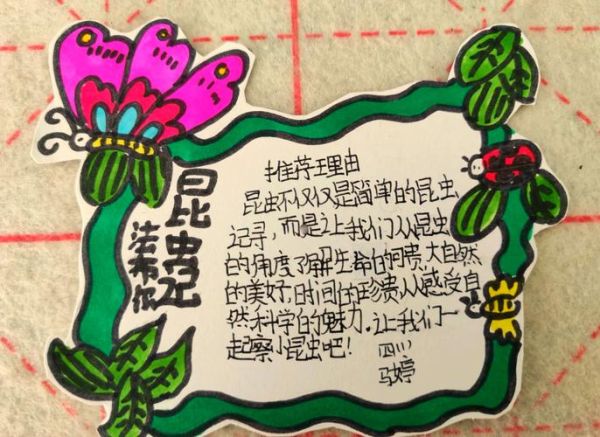 昆虫记
法布尔
推荐理由
昆虫不仅仅是简单的昆虫
记寻，而是让我们从昆虫
的角度了解生命的可贵,大自然
的美好,时间的珍贵从感受自
然科学的魅力,让我们一
起察小昆虫吧!
四川
马婷